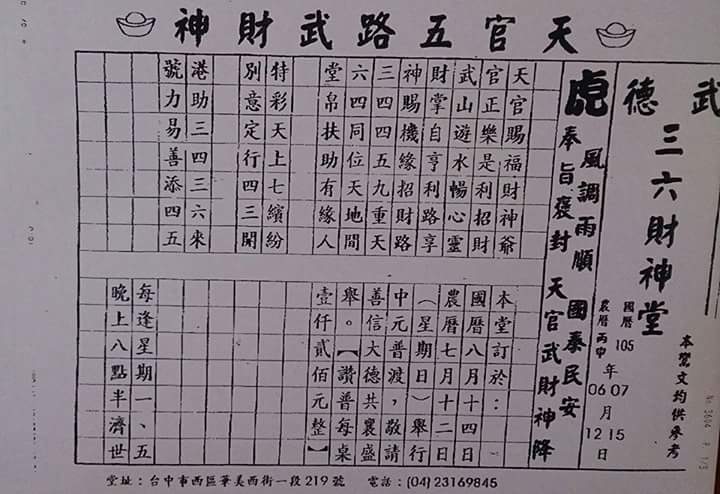 天官五路武財神
武德
三六財神堂
本鸞文均供參考
國曆 105 年 07 月 15 日
農曆丙申 年 06 月 12 日
虎
風調雨順 國泰民安
奉旨褒封 天官武財神降
天官賜福財神爺
官正樂是利招財
武山遊水暢心靈
財掌自亨利路享
神賜機緣招財路
三四四五九重天
六四同位天地間
堂帛扶助有緣人
特彩天上七繽紛
別意定行四三開
港助三四三六來
號力易善添四五
本堂訂於：
國曆八月十四日
農曆七月十二日
（星期日）舉行
中元普渡，敬請
善信大德共襄盛
舉。【讚普每桌
壹仟貳佰元整】
每逢星期一、五
晚上八點半濟世
堂址：台中市西區華美西街一段219號 電話：(04)23169845